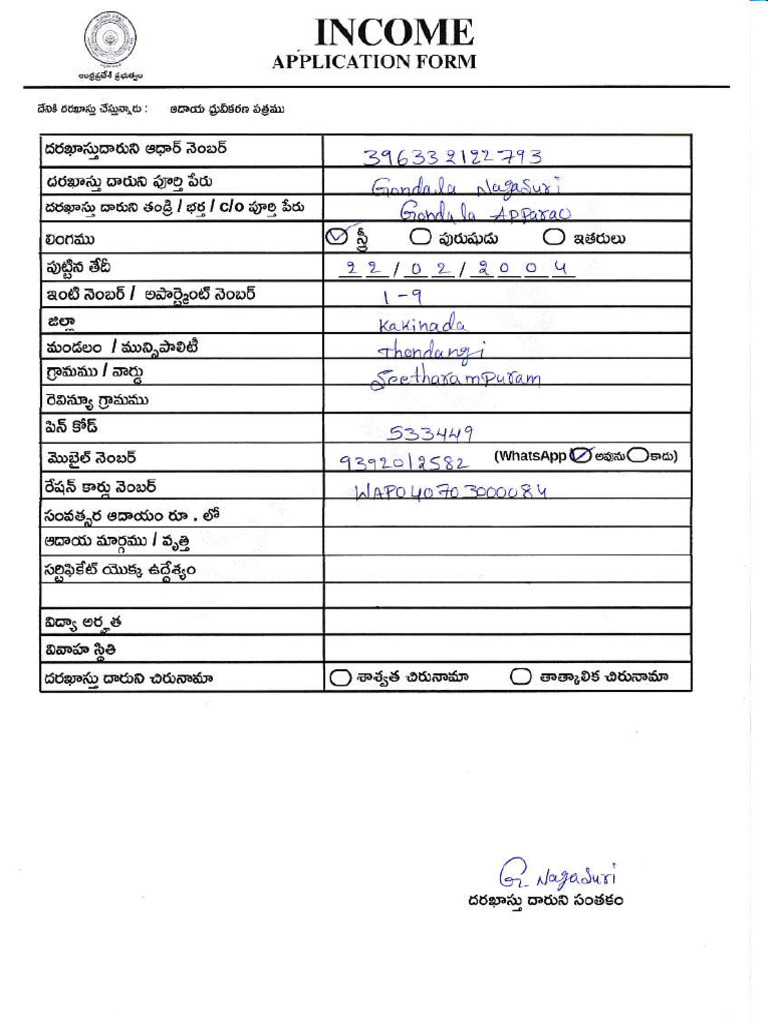 ఆంధ్రప్రదేశ్ ప్రభుత్వం
INCOME
APPLICATION FORM
దేనికి దరఖాస్తు చేస్తున్నారు : ఆదాయ ధ్రువీకరణ పత్రము
దరఖాస్తుదారుని ఆధార్ నెంబర్ 396332122793
దరఖాస్తు దారుని పూర్తి పేరు Gondala Nagasuri
దరఖాస్తు దారుని తండ్రి / భర్త / c/o పూర్తి పేరు Gondala Apparao
లింగము స్త్రీ పురుషుడు ఇతరులు
పుట్టిన తేదీ 22/02/2004
ఇంటి నెంబర్ / అపార్ట్మెంట్ నెంబర్ 1-9
జిల్లా Kakinada
మండలం / మున్సిపాలిటీ Thondangi
గ్రామము / వార్డు Seetharampuram
రెవిన్యూ గ్రామము
పిన్ కోడ్ 533449
మొబైల్ నెంబర్ 9392012582 (WhatsApp అవును కాదు)
రేషన్ కార్డు నెంబర్ WAP040703000084
సంవత్సర ఆదాయం రూ . లో
ఆదాయ మార్గము / వృత్తి
సర్టిఫికేట్ యొక్క ఉద్దేశ్యం
విద్యా అర్హత
వివాహ స్థితి
దరఖాస్తు దారుని చిరునామా శాశ్వత చిరునామా తాత్కాలిక చిరునామా
G. Nagasuri
దరఖాస్తు దారుని సంతకం